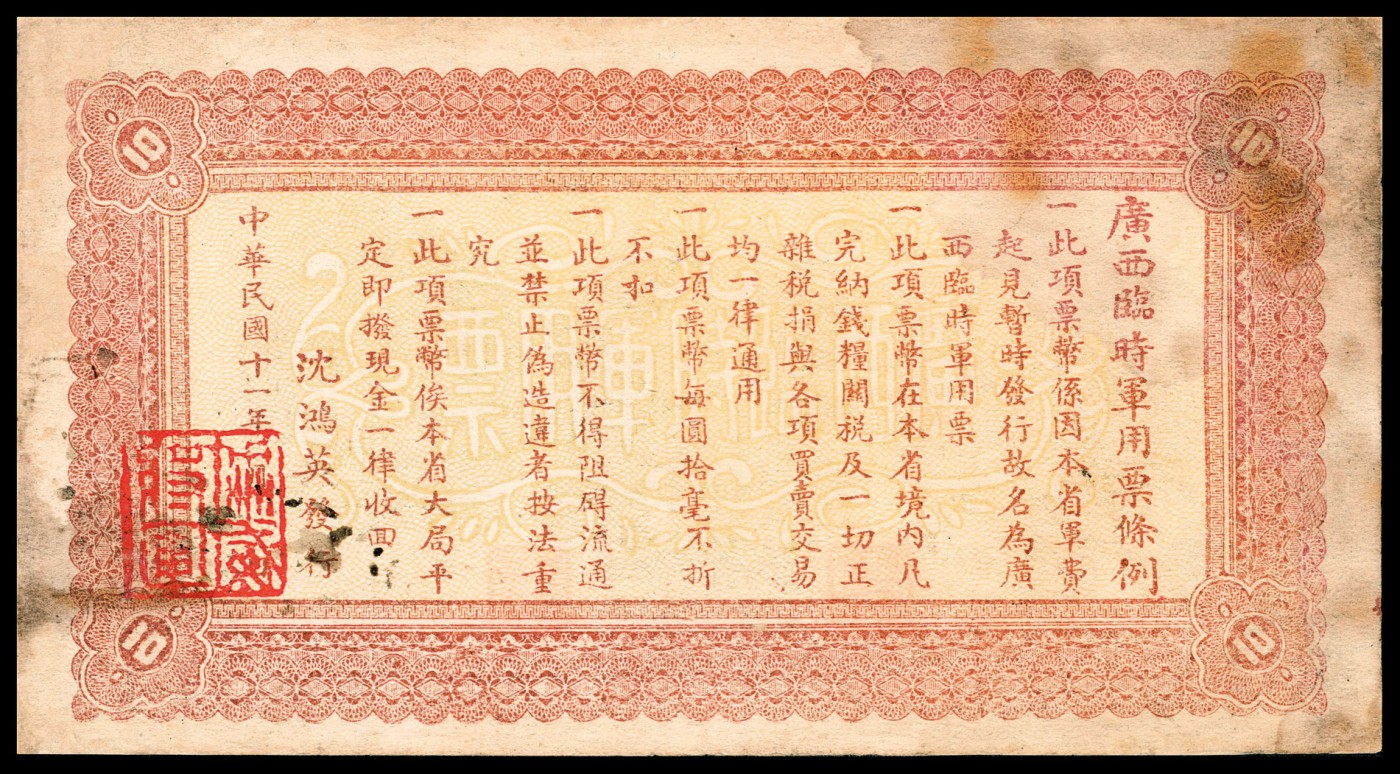 廣西臨時軍用票條例
一此項票幣係因本省軍費
起見暫時發行故名為廣
西臨時軍用票
一此項票幣在本省境內凡
完納錢糧關税及一切正
雜税捐與各項買賣交易
均一律通用
一此項票幣每圓拾毫不折
不扣
一此項票幣不得阻碍流通
並禁止偽造違者按法重
究
一此項票幣俟本省大局平
定即撥現金一律收回
沈鴻英發行
中華民國十一年
10
10
10
10